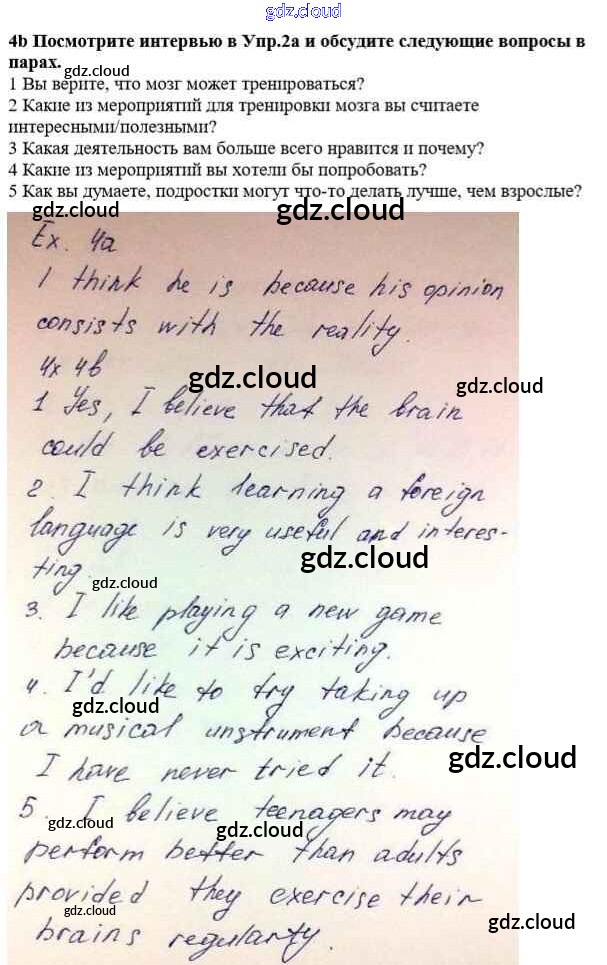 gdz.cloud
4b Посмотрите интервью в Упр.2а и обсудите следующие вопросы в
парах.
gdz.cloud
1 Вы верите, что мозг может тренироваться?
2 Какие из мероприятий для тренировки мозга вы считаете
интересными/полезными?
3 Какая деятельность вам больше всего нравится и почему?
4 Какие из мероприятий вы хотели бы попробовать?
5 Как вы думаете, подростки могут что-то делать лучше, чем взрослые?
gdz.cloud
gdz.cloud
Ex. 4a
I think he is because his opinion
consists with the reality.
gdz.cloud
4x 4b
gdz.cloud
gdz.cloud
1 Yes, I believe that the brain
could be exercised.
2. I think learning a foreign
language is very useful and interes-
gdz.cloud
ting.
gdz.cloud
3. I like playing a new game
because it is exciting.
4. I'd like to try taking up
gdz.cloud
a musical unstrument because
gdz.cloud
I have never tried it.
5. I believe teenagers may
gdz.cloud
gdz.cloud
perform better than adults
provided they exercise their
gdz.cloud
gdz.cloud
brains regularty.